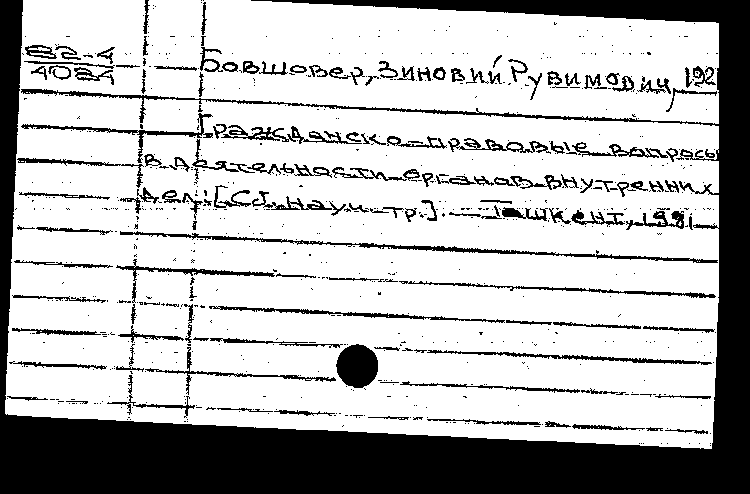 82-4
4084
Бовшовер, Зиновий Рувимович, 192
Гражданско-правовые вопросы
в деятельности органов внутренних
дел: [Сб. науч. тр.]. — Ташкент, 1981